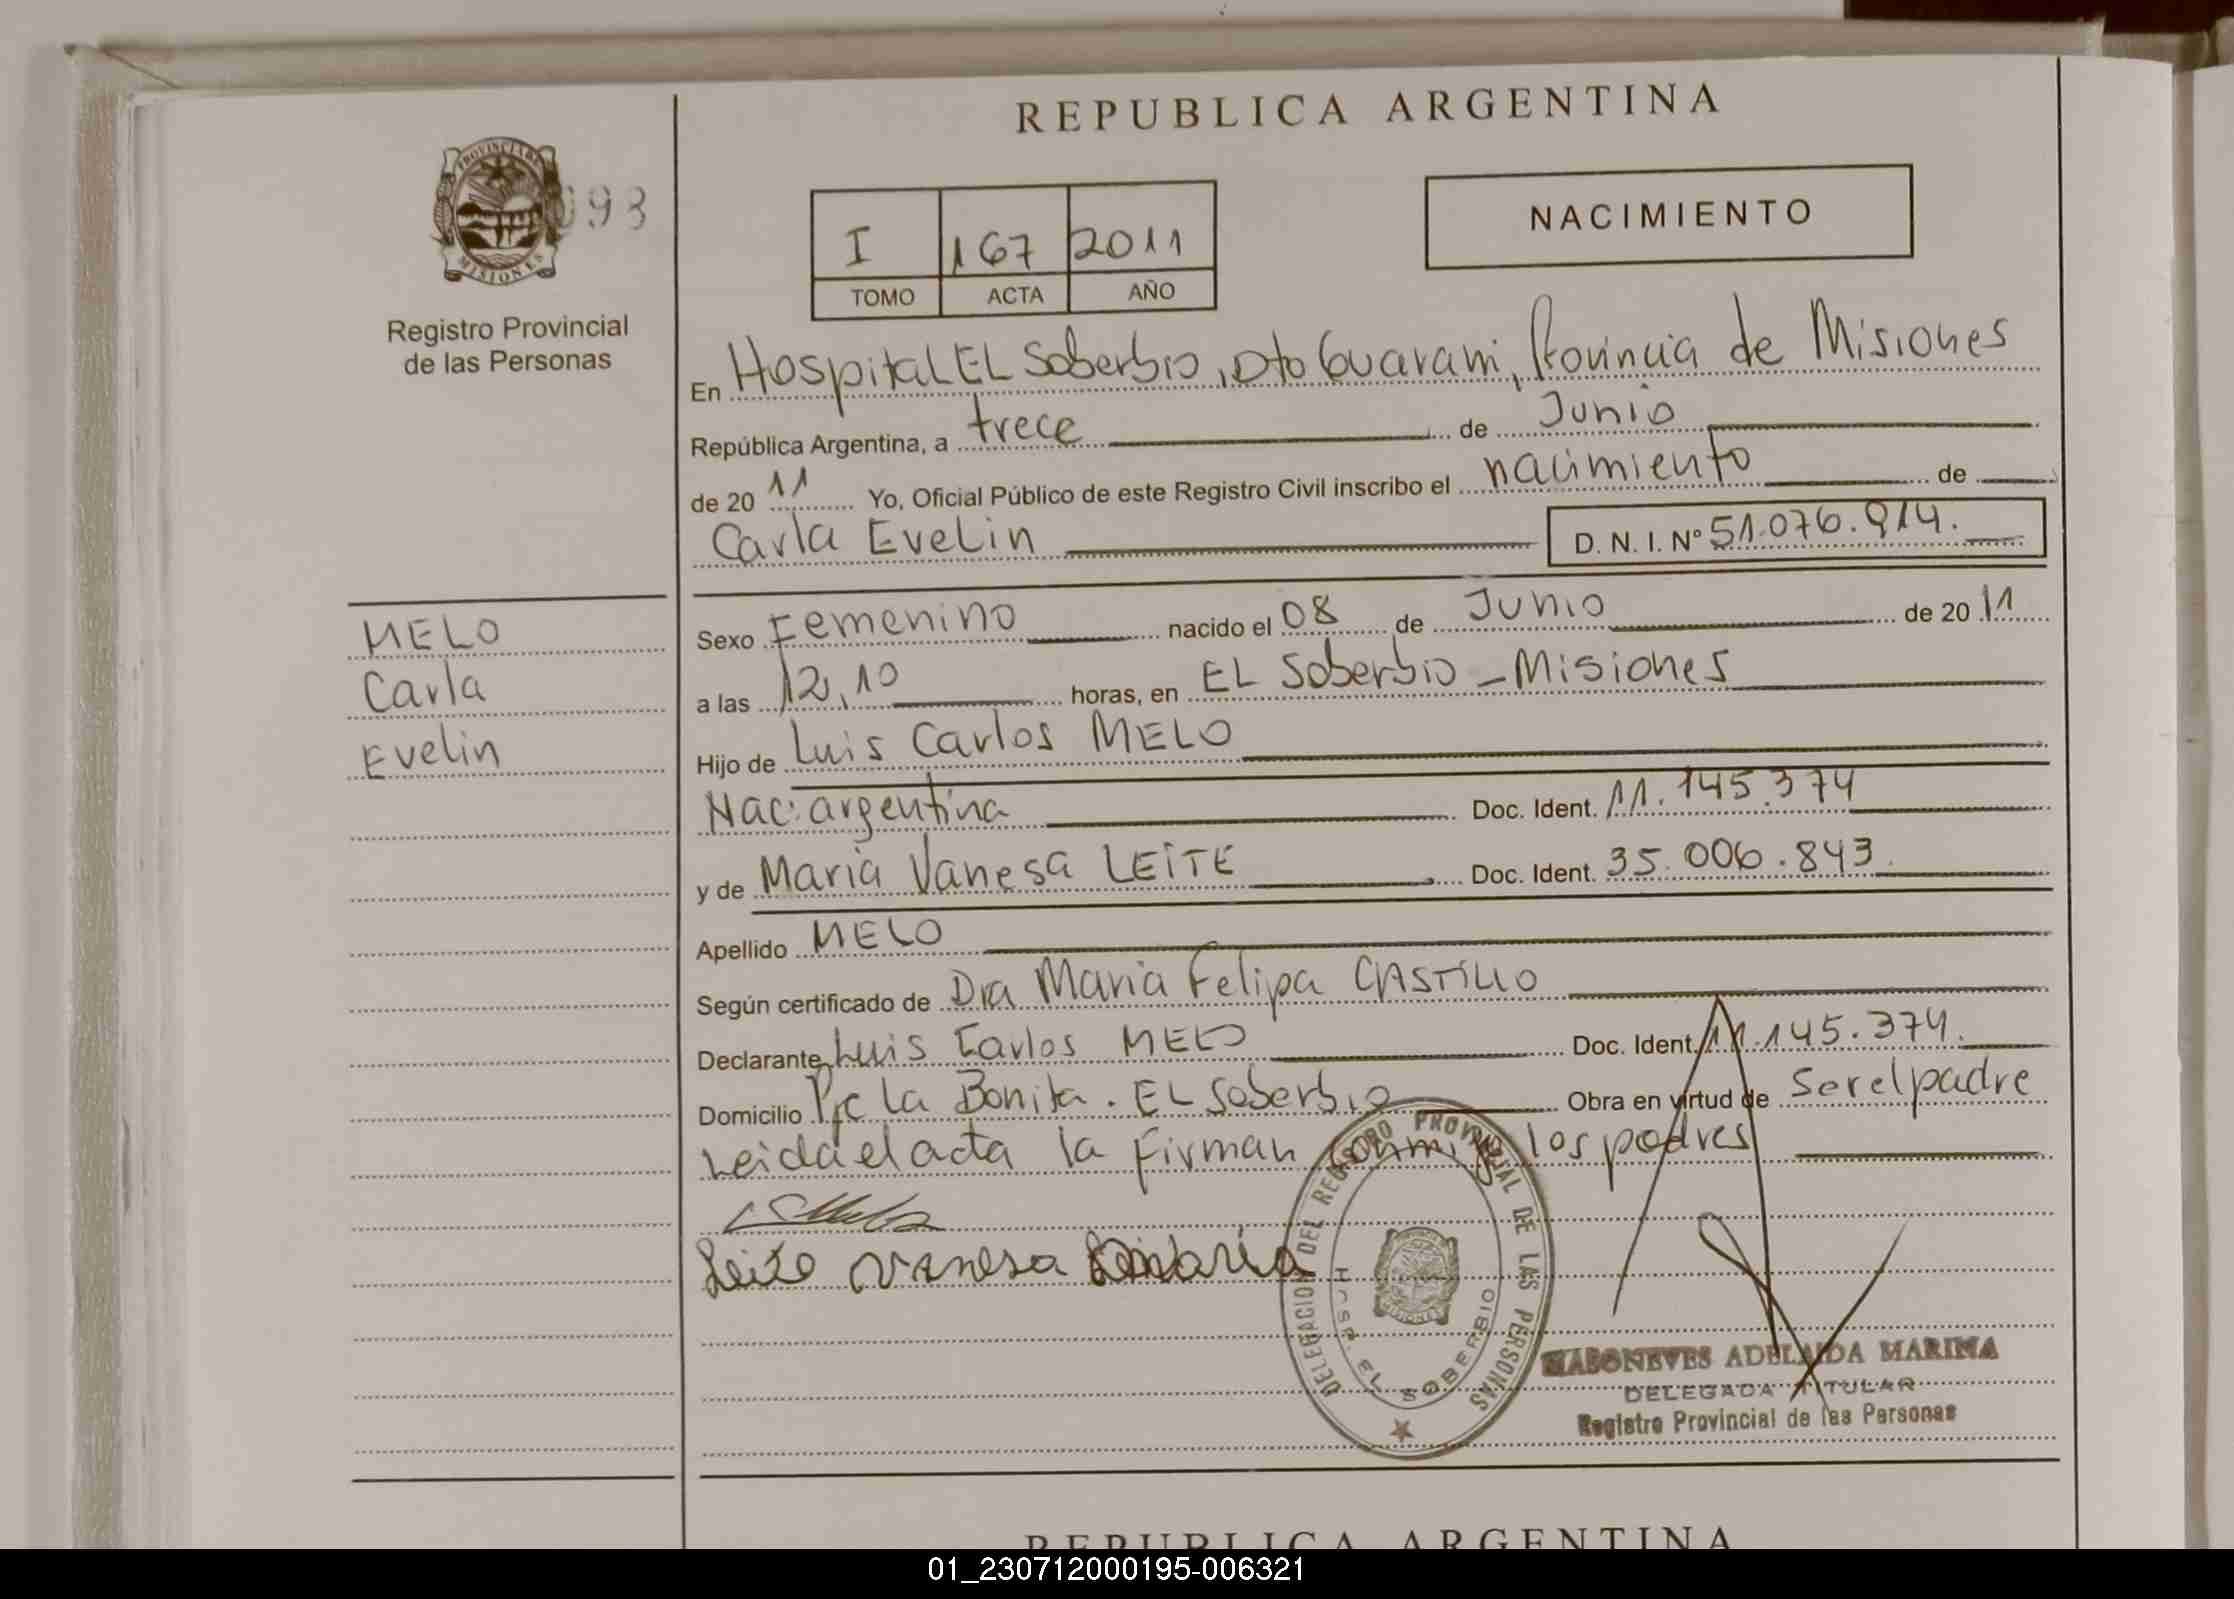 REPUBLICA ARGENTINA
PROVINCIA DE
MISIONES
93
Registro Provincial
de las Personas
I 167 2011
TOMO ACTA AÑO
NACIMIENTO
En Hospital EL Soberbio, Dto Guarani, Provincia de Misiones
República Argentina, a trece de Junio
de 20 11 Yo, Oficial Público de este Registro Civil inscribo el nacimiento de
Carla Evelin D. N. I. Nº 51.076.914.
MELO
Carla
Evelin
Sexo Femenino nacido el 08 de Junio de 20 11
a las 12,10 horas, en EL Soberbio - Misiones
Hijo de Luis Carlos MELO
Nac: argentina Doc. Ident. 11.145.374
y de Maria Vanesa LEITE Doc. Ident. 35.006.843.
Apellido MELO
Según certificado de Dra Maria Felipa CASTILLO
Declarante Luis Carlos MELO Doc. Ident. 11.145.374.
Domicilio Pje La Bonita. EL Soberbio Obra en virtud de ser el padre
Leida el acta la Firman conmigo los padres
Leite Vanesa Maria
DELEGACION DEL REGISTRO PROVINCIAL DE LAS PERSONAS
HOSP. EL SOBERBIO
ADELAIDA MARINA
DELEGADA TITULAR
Registro Provincial de las Personas
REPUBLICA ARGENTINA
01_230712000195-006321